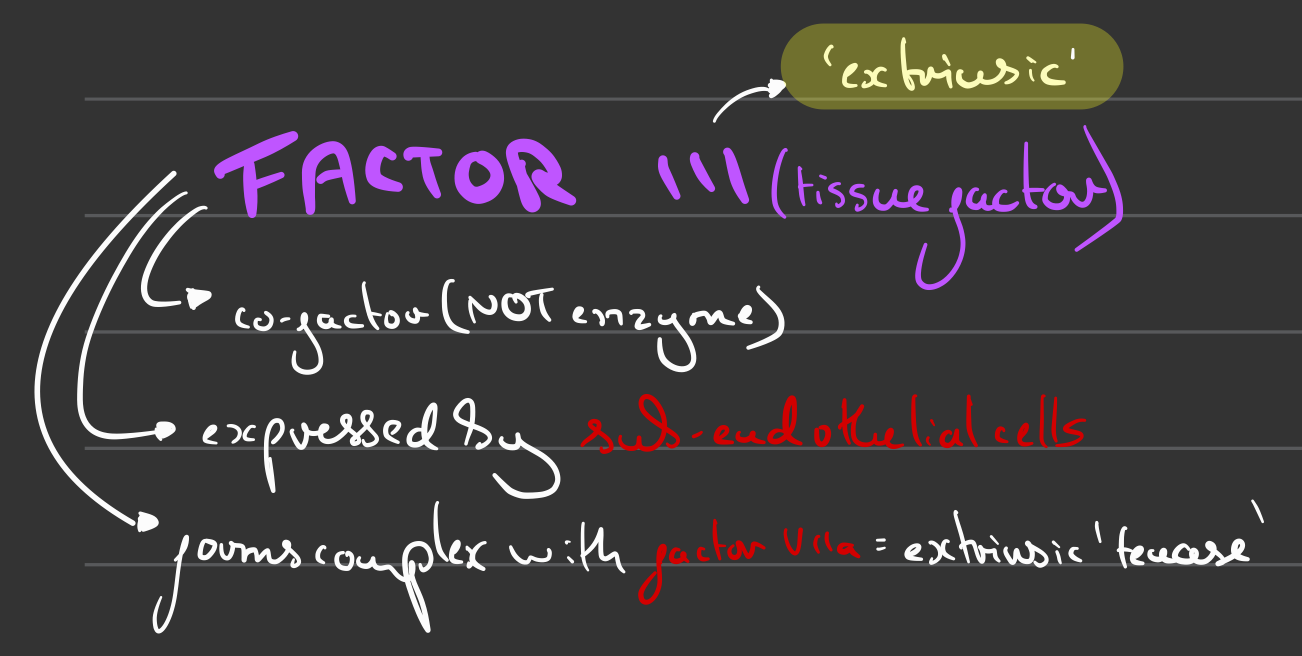 'extrinsic'
FACTOR III (tissue factor)
co-factor (NOT enzyme)
expressed by sub-endothelial cells
forms complex with factor VIIa = extrinsic 'tenase'